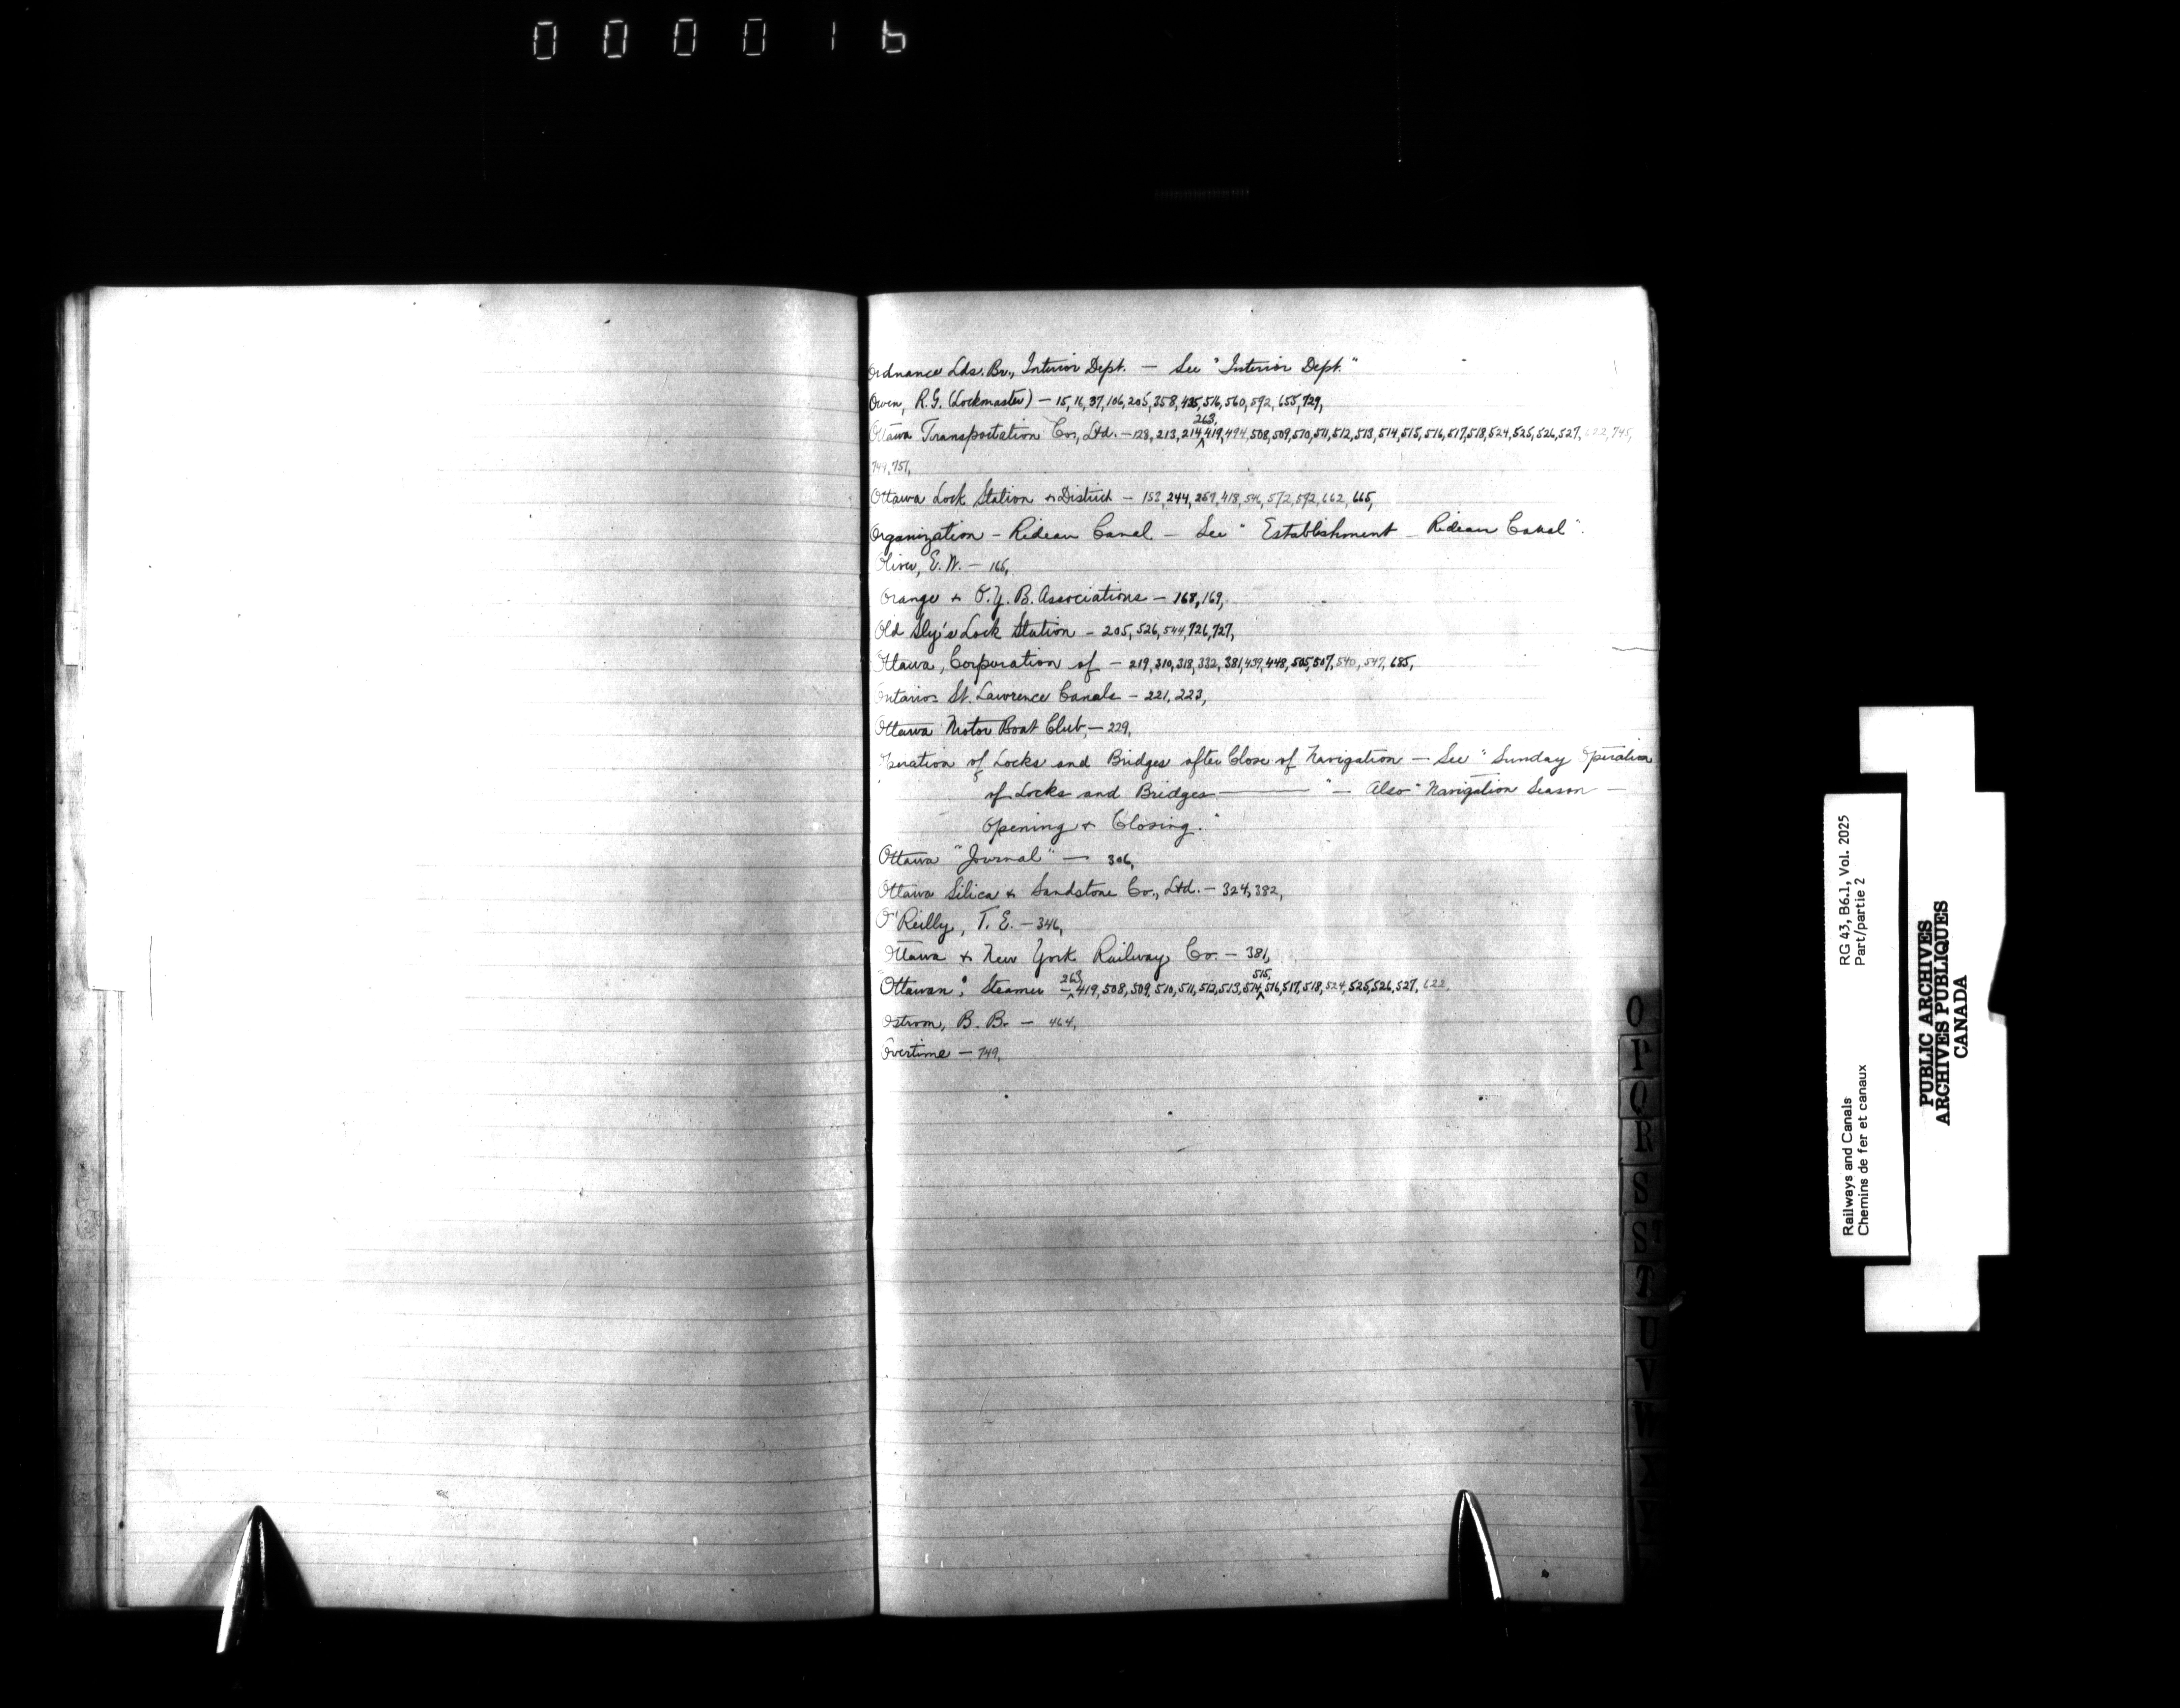 000016
Ordnance Lds. Br., Interior Dept. — See "Interior Dept."
Owen, R.G. (Lockmaster) — 15, 16, 37, 106, 205, 358, 435, 516, 560, 592, 655, 729,
263,
Ottawa Transportation Co., Ltd. — 128, 213, 214, 419, 494, 508, 509, 510, 511, 512, 513, 514, 515, 516, 517, 518, 524, 525, 526, 527, 622, 745,
749, 751,
Ottawa Lock Station & District — 153, 244, 259, 418, 546, 572, 592, 662, 665,
Organization — Rideau Canal — See "Establishment — Rideau Canal".
Oliver, E.W. — 165,
Orange & O.Y.B. Associations — 168, 169,
Old Sly's Lock Station — 205, 526, 544, 726, 727,
Ottawa, Corporation of — 219, 310, 318, 332, 381, 439, 448, 505, 507, 540, 547, 685,
Ontario - St. Lawrence Canals — 221, 223,
Ottawa Motor Boat Club, — 229,
Operation of Locks and Bridges after Close of Navigation — See "Sunday Operation
of Locks and Bridges ——— " — Also "Navigation Season —
Opening & Closing."
Ottawa "Journal" — 306,
Ottawa Silica & Sandstone Co., Ltd. — 324, 382,
O'Reilly, T.E. — 346,
Ottawa & New York Railway Co. — 381,
263, 515,
"Ottawan", Steamer — 419, 508, 509, 510, 511, 512, 513, 514, 516, 517, 518, 524, 525, 526, 527, 622,
Ostrom, B.B. — 464,
Overtime — 749,
O
P
Q
R
S
T
U
V
W
RG 43, B6.1, Vol. 2025
Part/partie 2
Railways and Canals
Chemins de fer et canaux
PUBLIC ARCHIVES
ARCHIVES PUBLIQUES
CANADA